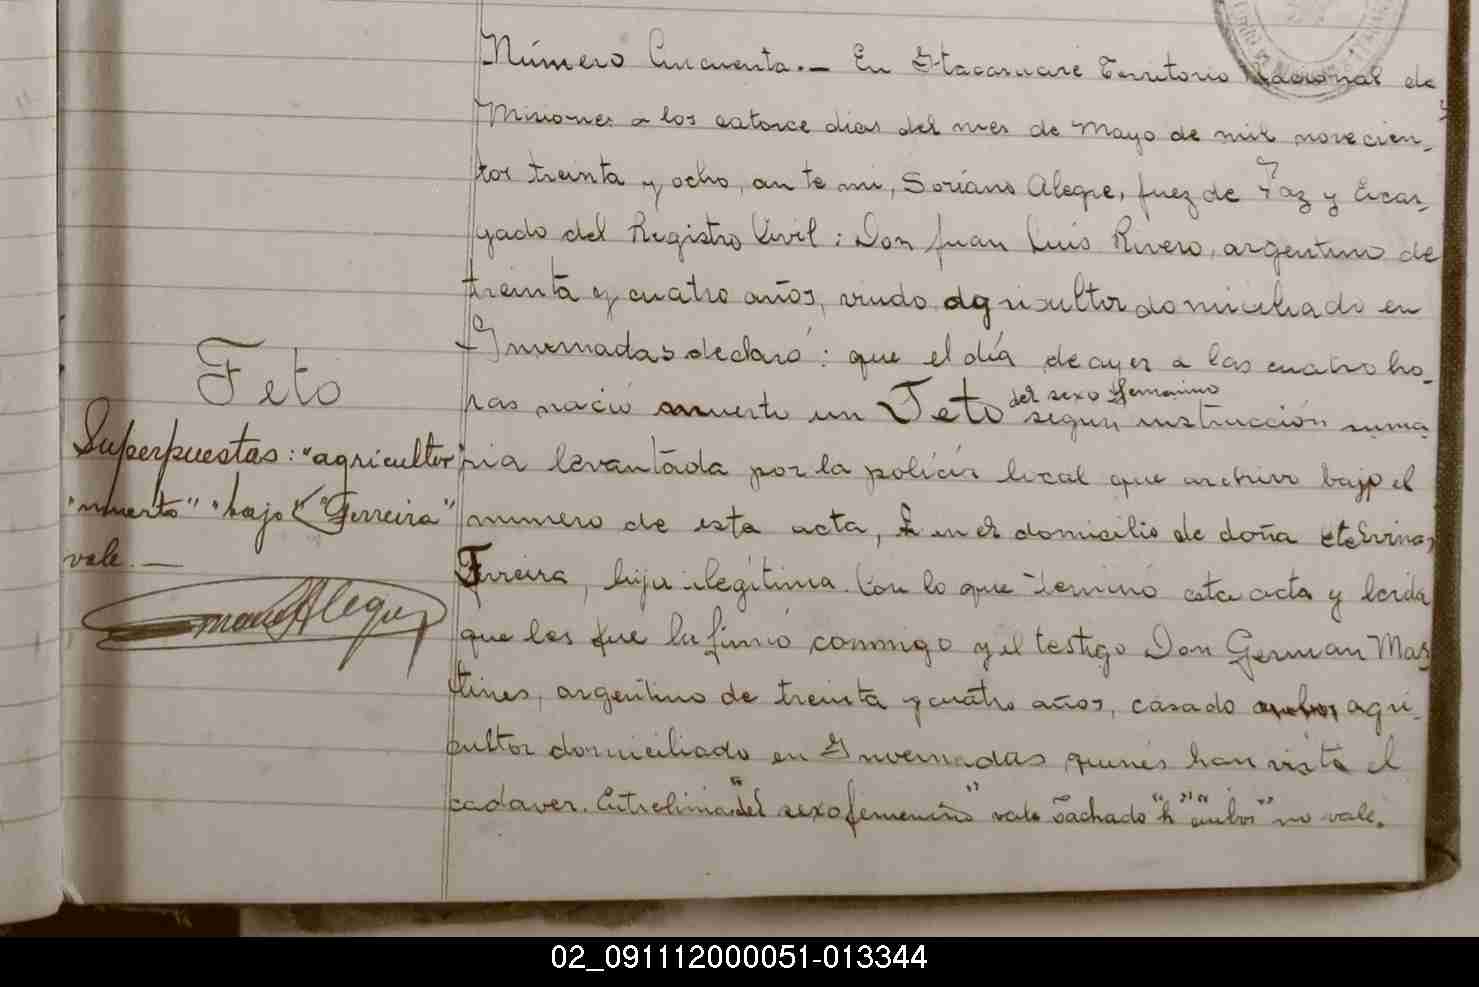 Número Cincuenta.- En Itacaruaré Territorio Nacional de
Misiones a los catorce dias del mes de Mayo de mil novecien-
tos treinta y ocho, ante mi, Soriano Alegre, Juez de Paz y Encar-
gado del Registro Civil; Don Juan Luis Rivero, argentino de
treinta y cuatro años, viudo agricultor domiciliado en
Invernadas declaró: que el día de ayer a las cuatro ho-
ras nació muerto un Feto del sexo femenino segun instrucción suma-
ria levantada por la policía local que archivo bajo el
numero de esta acta, en el domicilio de doña Etelvina
Ferreira, hija ilegítima. Con lo que terminó esta acta y leida
que les fue la firmó conmigo y el testigo Don German Mar-
tines, argentino de treinta y cuatro años, casado ambos agri-
cultor domiciliado en Invernadas quienes han visto el
cadaver. Entrelinia "del sexo femenino" vale Tachado "h" "ambos" no vale.
Feto
Superpuestas: "agricultor"
"muerto" "bajo" "Ferreira"
vale.-
Alegre
02_091112000051-013344